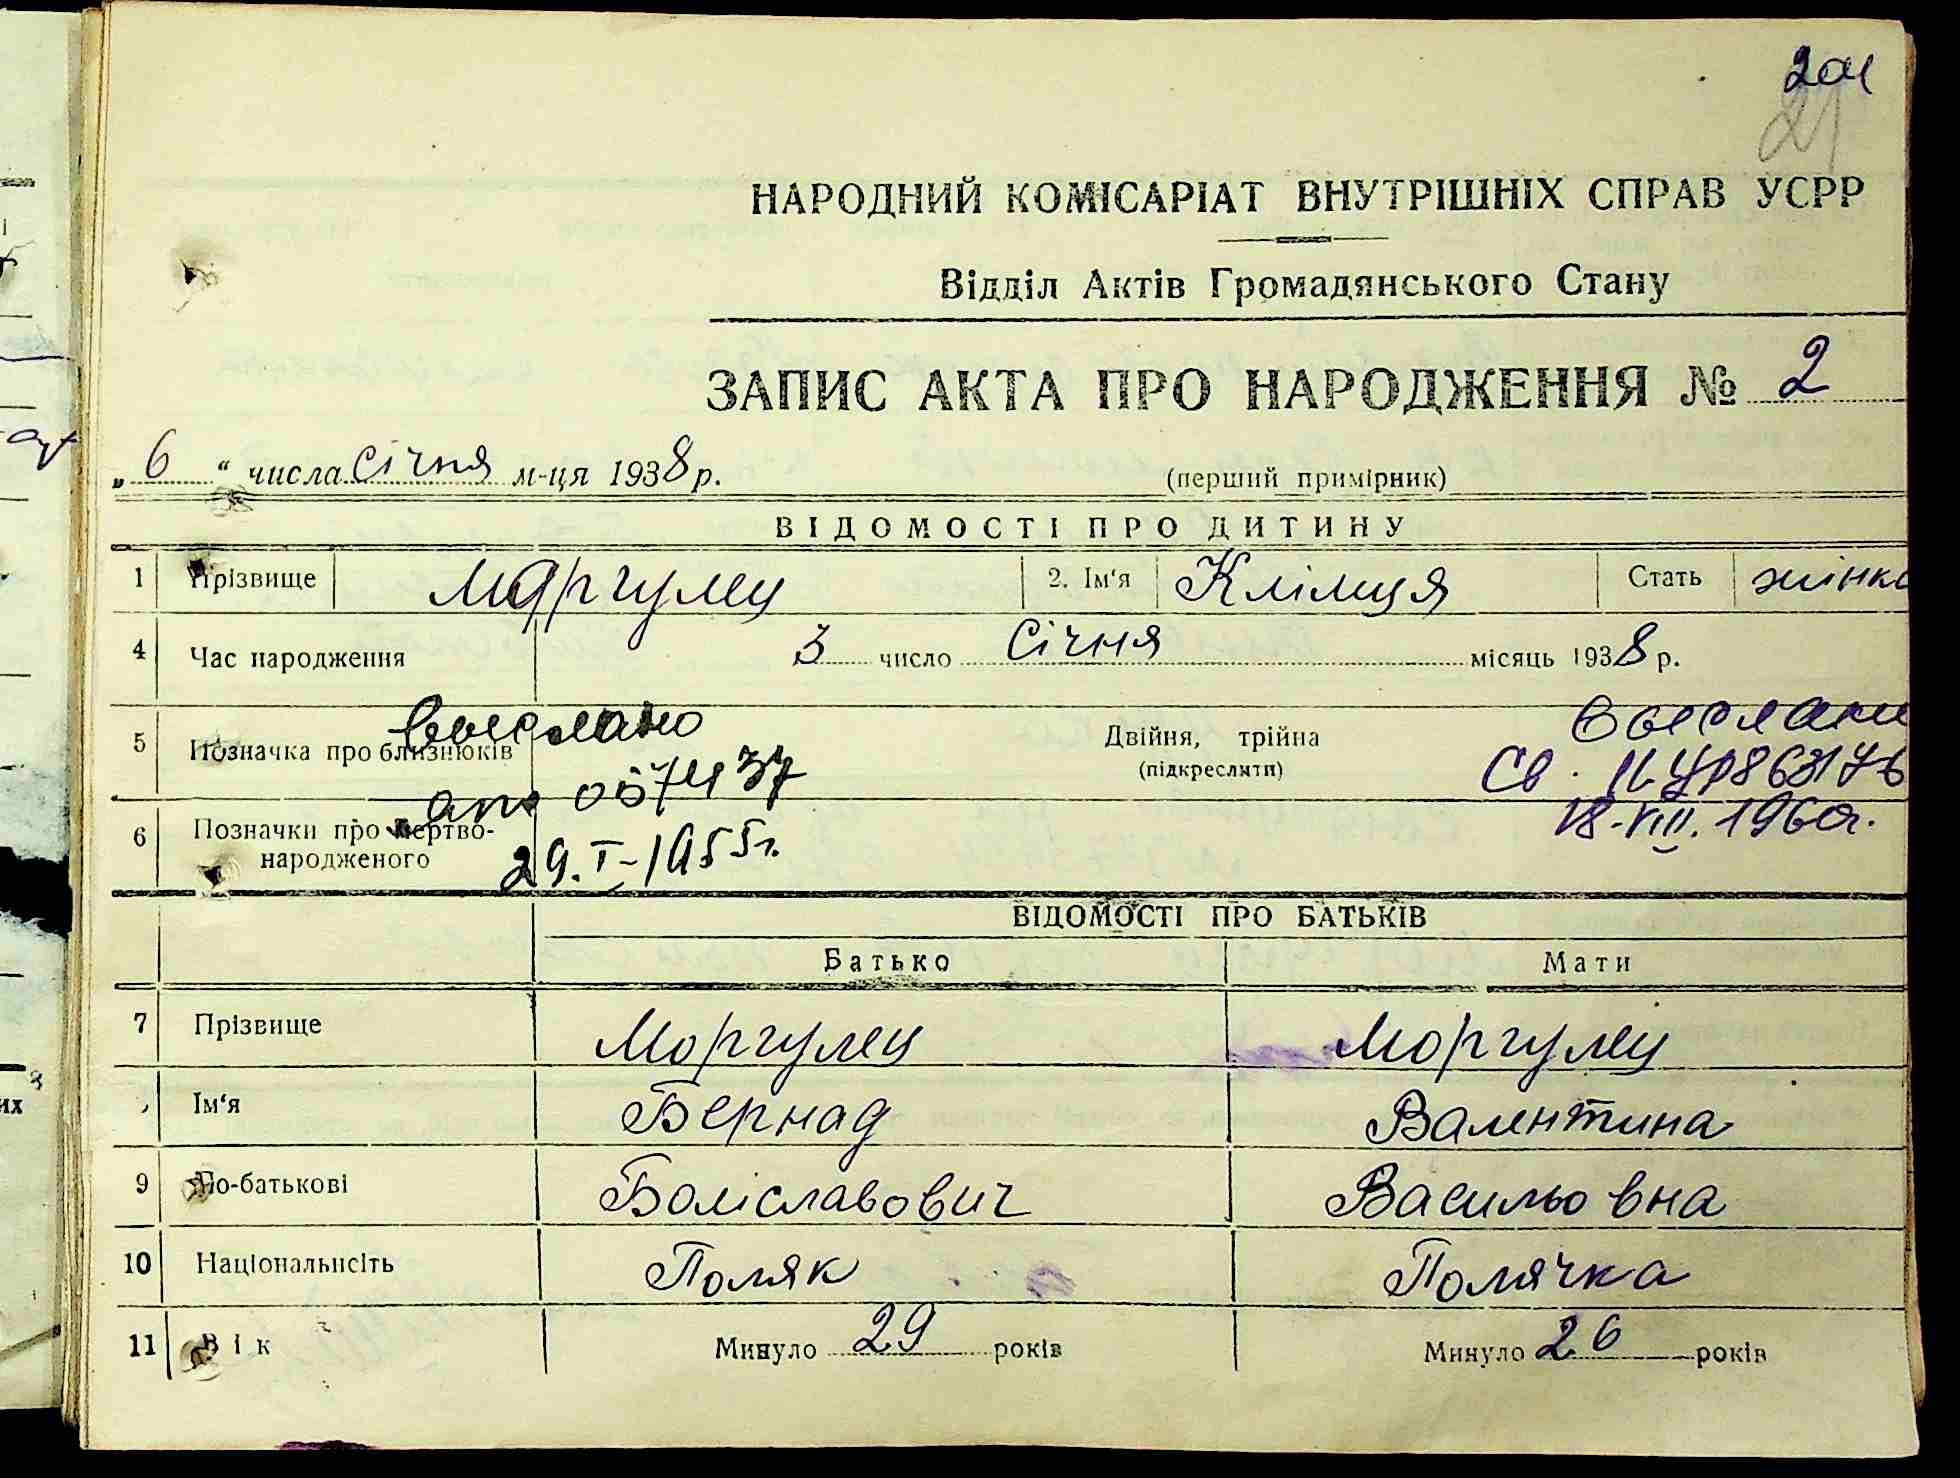 204
21
НАРОДНИЙ КОМІСАРІАТ ВНУТРІШНІХ СПРАВ УСРР
Відділ Актів Громадянського Стану
ЗАПИС АКТА ПРО НАРОДЖЕННЯ № 2
„ 6 “ числа січня м-ця 1938 р. (перший примірник)
ВІДОМОСТІ ПРО ДИТИНУ
1 Прізвище Моргулец 2. Ім‘я Клімця Стать жінко
4 Час народження 3 число Січня місяць 1938 р.
5 Позначка про близнюків Двійня, трійна
(підкреслити)
выслано
29.I-1955г.
Св. II-УР 863176
18-VIII.1960г.
6 Позначки про мертво-
народженого
ВІДОМОСТІ ПРО БАТЬКІВ
Батько Мати
7 Прізвище Моргулец Моргулец
Ім‘я Бернад Валентина
9 По-батькові Боліславович Васильовна
10 Національність Поляк Полячка
11 Вік Минуло 29 років Минуло 26 років